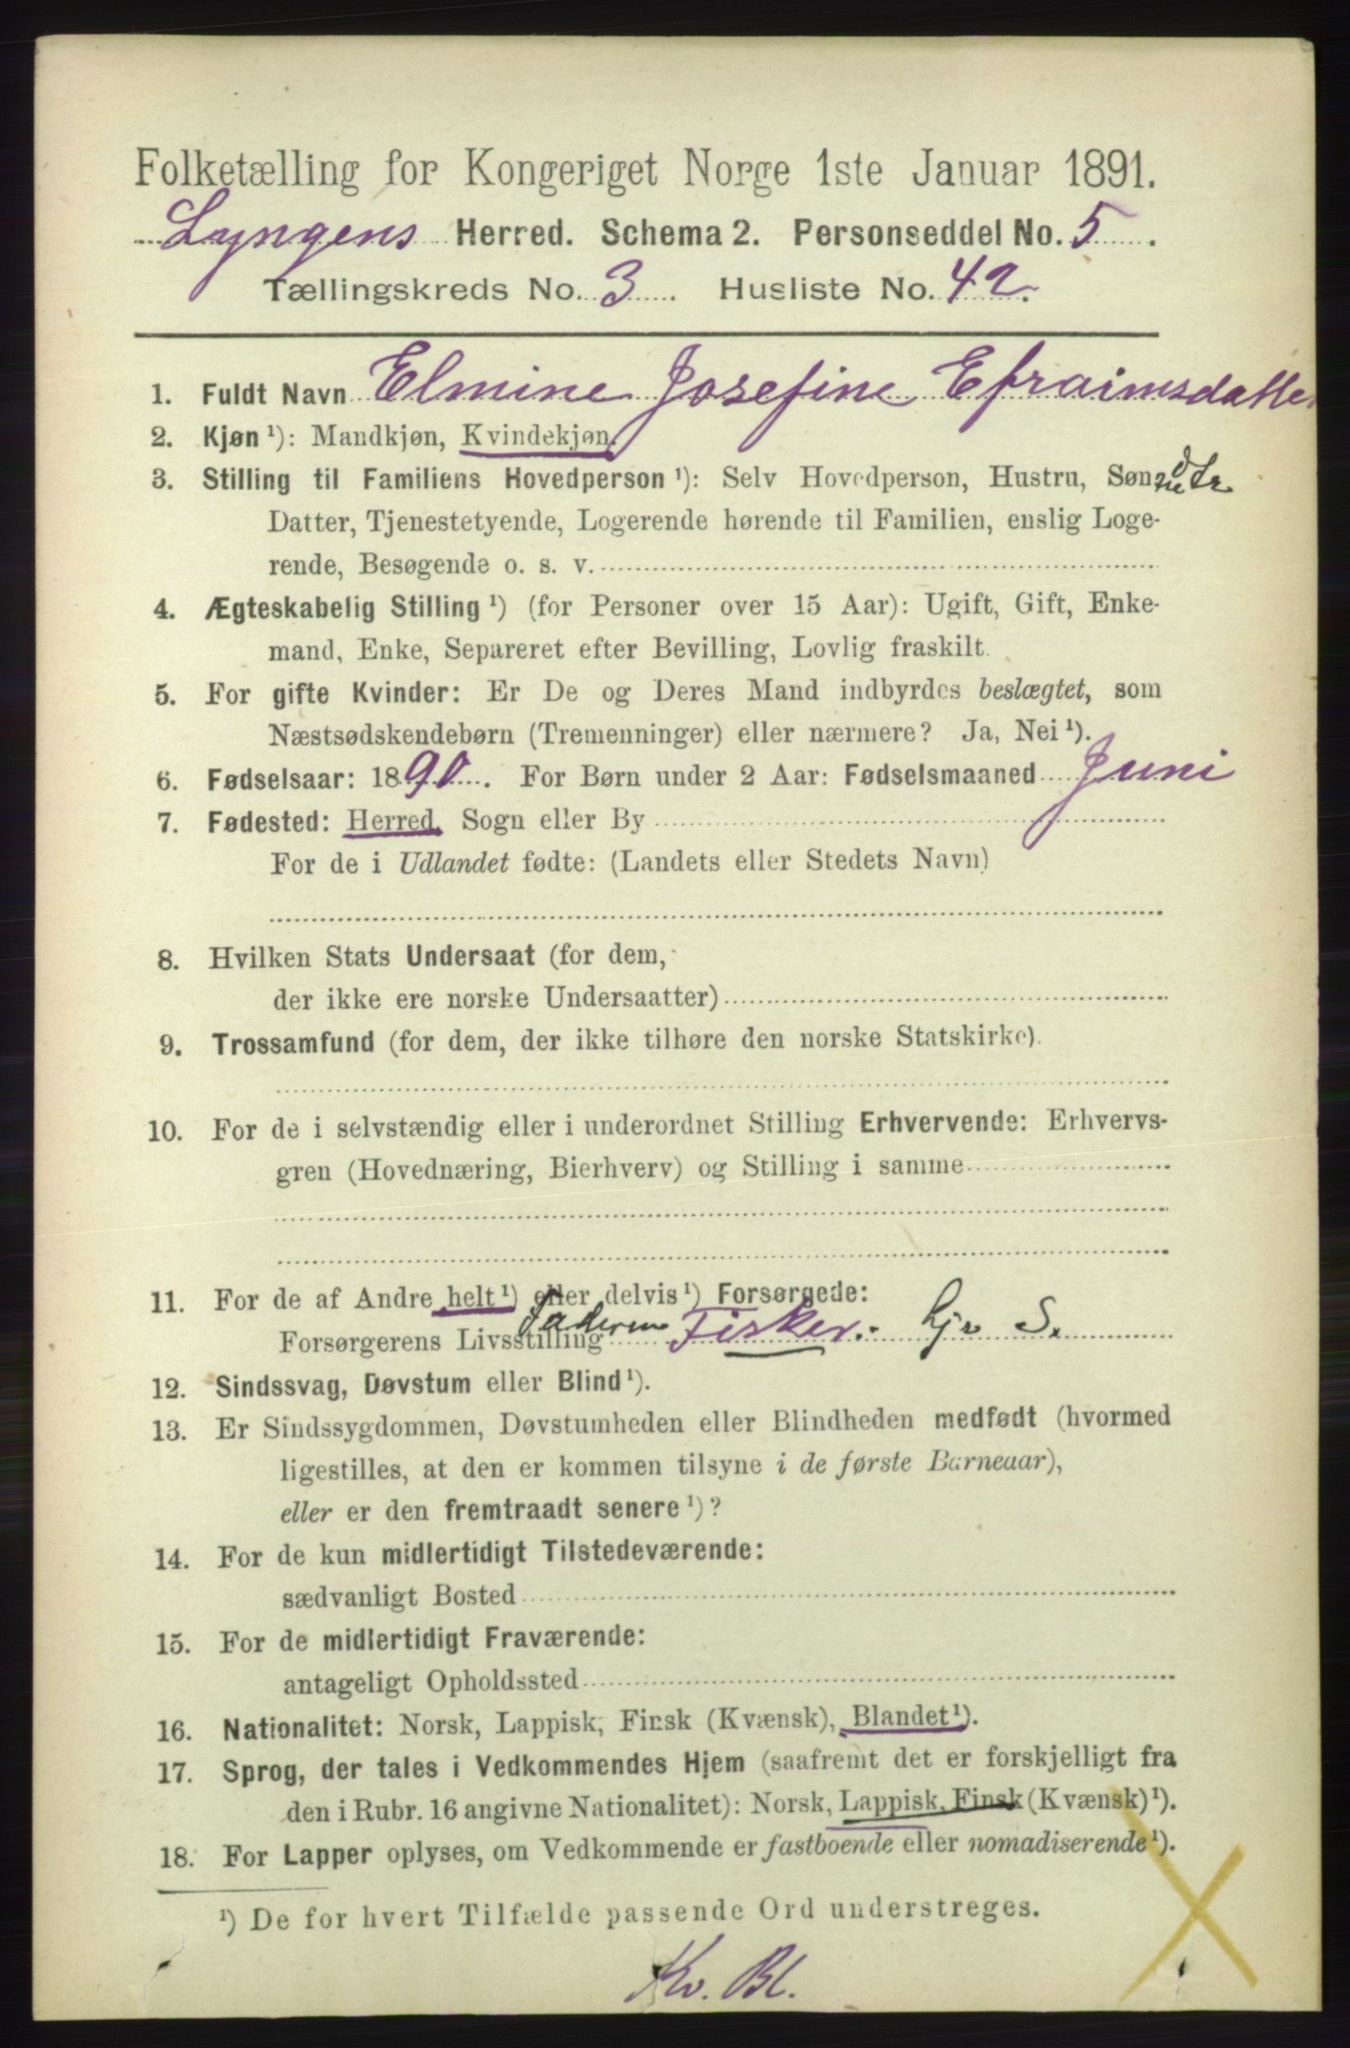 Folketælling for Kongeriget Norge 1ste Januar 1891.
Lyngens Herred. Schema 2. Personseddel No. 5.
Tællingskreds No. 3. Husliste No. 42.
1. Fuldt Navn Elmine Josefine Efraimsdatter
2. Kjøn ¹): Mandkjøn, Kvindekjøn.
3. Stilling til Familiens Hovedperson ¹): Selv Hovedperson, Hustru, Søn, dtr
Datter, Tjenestetyende, Logerende hørende til Familien, enslig Loge-
rende, Besøgende o. s. v.
4. Ægteskabelig Stilling ¹) (for Personer over 15 Aar): Ugift, Gift, Enke-
mand, Enke, Separeret efter Bevilling, Lovlig fraskilt.
5. For gifte Kvinder: Er De og Deres Mand indbyrdes beslægtet, som
Næstsødskendebørn (Tremenninger) eller nærmere? Ja, Nei ¹).
6. Fødselsaar: 1890. For Børn under 2 Aar: Fødselsmaaned Juni
7. Fødested: Herred, Sogn eller By
For de i Udlandet fødte: (Landets eller Stedets Navn)
8. Hvilken Stats Undersaat (for dem,
der ikke ere norske Undersaatter)
9. Trossamfund (for dem, der ikke tilhøre den norske Statskirke).
10. For de i selvstændig eller i underordnet Stilling Erhvervende: Erhvervs-
gren (Hovednæring, Bierhverv) og Stilling i samme
11. For de af Andre helt ¹) eller delvis ¹) Forsørgede:
Forsørgerens Livsstilling Faderen Fisker. S.
12. Sindssvag, Døvstum eller Blind ¹).
13. Er Sindssygdommen, Døvstumheden eller Blindheden medfødt (hvormed
ligestilles, at den er kommen tilsyne i de første Barneaar),
eller er den fremtraadt senere ¹)?
14. For de kun midlertidigt Tilstedeværende:
sædvanligt Bosted
15. For de midlertidigt Fraværende:
antageligt Opholdssted
16. Nationalitet: Norsk, Lappisk, Finsk (Kvænsk), Blandet ¹).
17. Sprog, der tales i Vedkommendes Hjem (saafremt det er forskjelligt fra
den i Rubr. 16 angivne Nationalitet): Norsk, Lappisk, Finsk (Kvænsk) ¹).
18. For Lapper oplyses, om Vedkommende er fastboende eller nomadiserende ¹).
¹) De for hvert Tilfælde passende Ord understreges.
Kv. Bl.